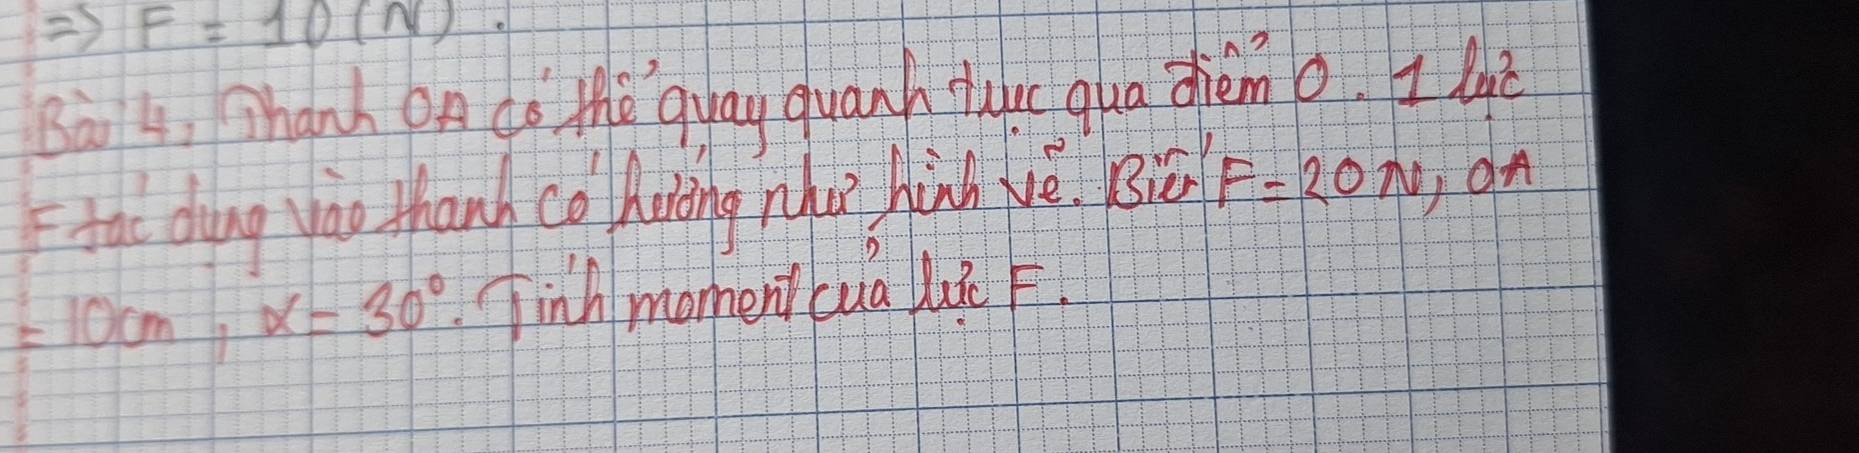 => F = 10 (N).
Bài 4. Thanh OA có thể quay quanh trục qua điểm O. 1 lực
F tác dụng vào thanh có hướng như hình vẽ. Biết F = 20 N, OA
= 10cm, α = 30°. Tính moment của lực F.